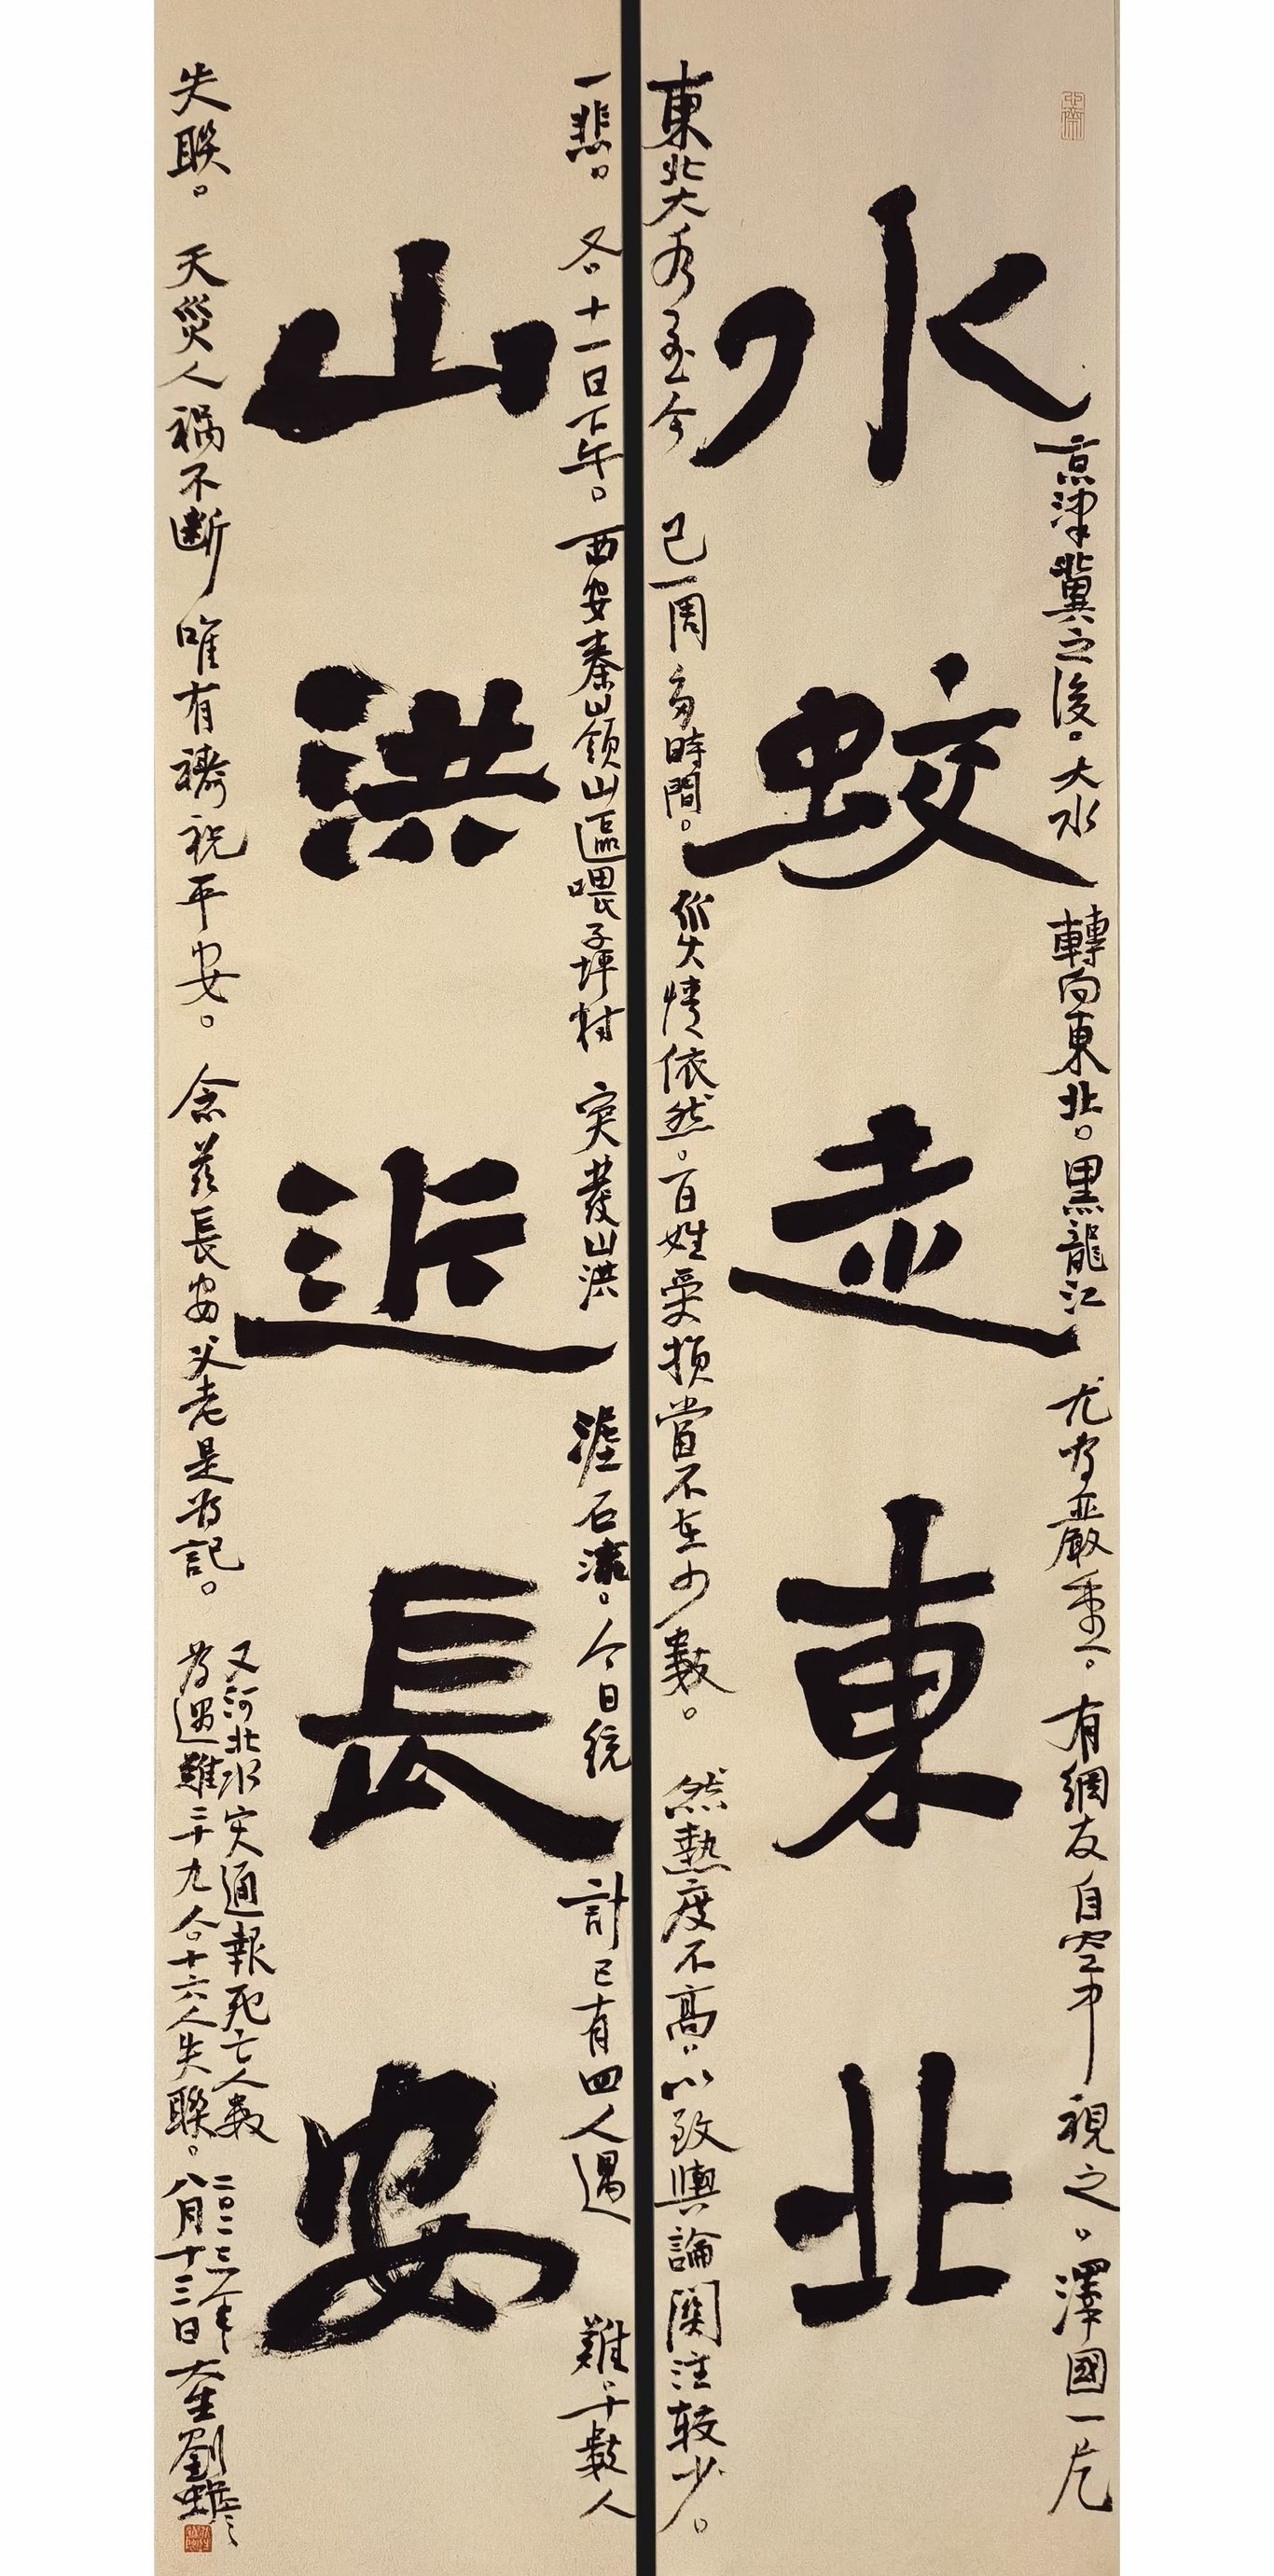 水蛟走東北
京津冀之後。大水轉向東北。黑龍江尤为嚴重。有網友自空中視之。澤國一片
東北大水至今已一周多時間。災情依然。百姓受損當不在少數。然熱度不高。以致輿論関注較少。
山洪近長安
一悲。又。十一日下午。西安秦嶺山區喂子坪村突发山洪泥石流。今日統計已有四人遇難。十數人
失联。天災人祸不断唯有禱祝平安。念兹長安父老是为記。
又河北水灾通報死亡人数
为遇難二十九人。十六人失联。
二〇二三年
八月十三日
劉蟾